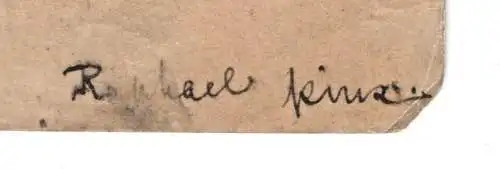 Raphael pinx.